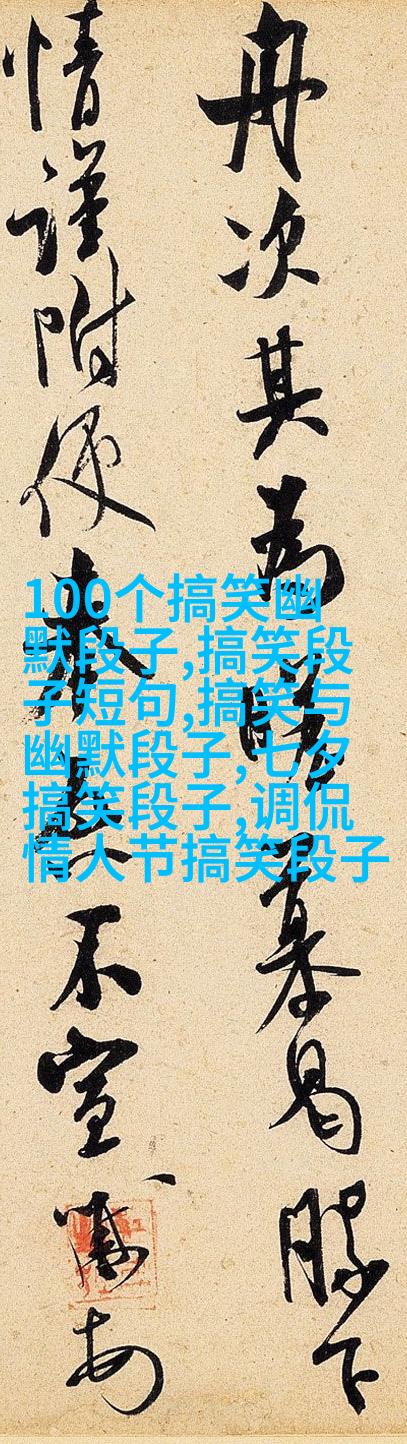 舟次其為慕曷勝下
情謹附便奉不宣
100个搞笑幽
默段子,搞笑段
子短句,搞笑与
幽默段子,七夕
搞笑段子,调侃
情人节搞笑段子